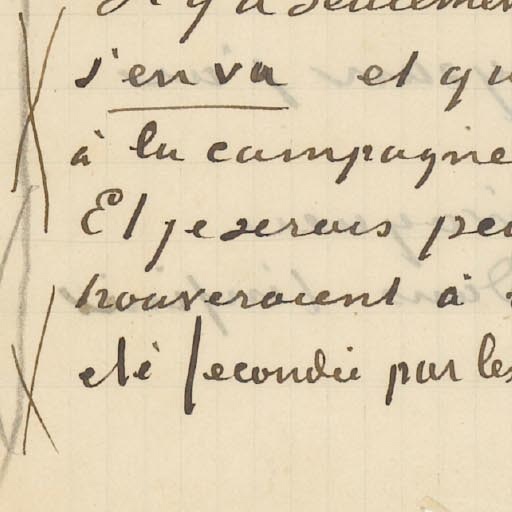 Il y a seulement
s'en va et qu
à la campagne
Et je serais peu
trouveraient à
été secondée par les